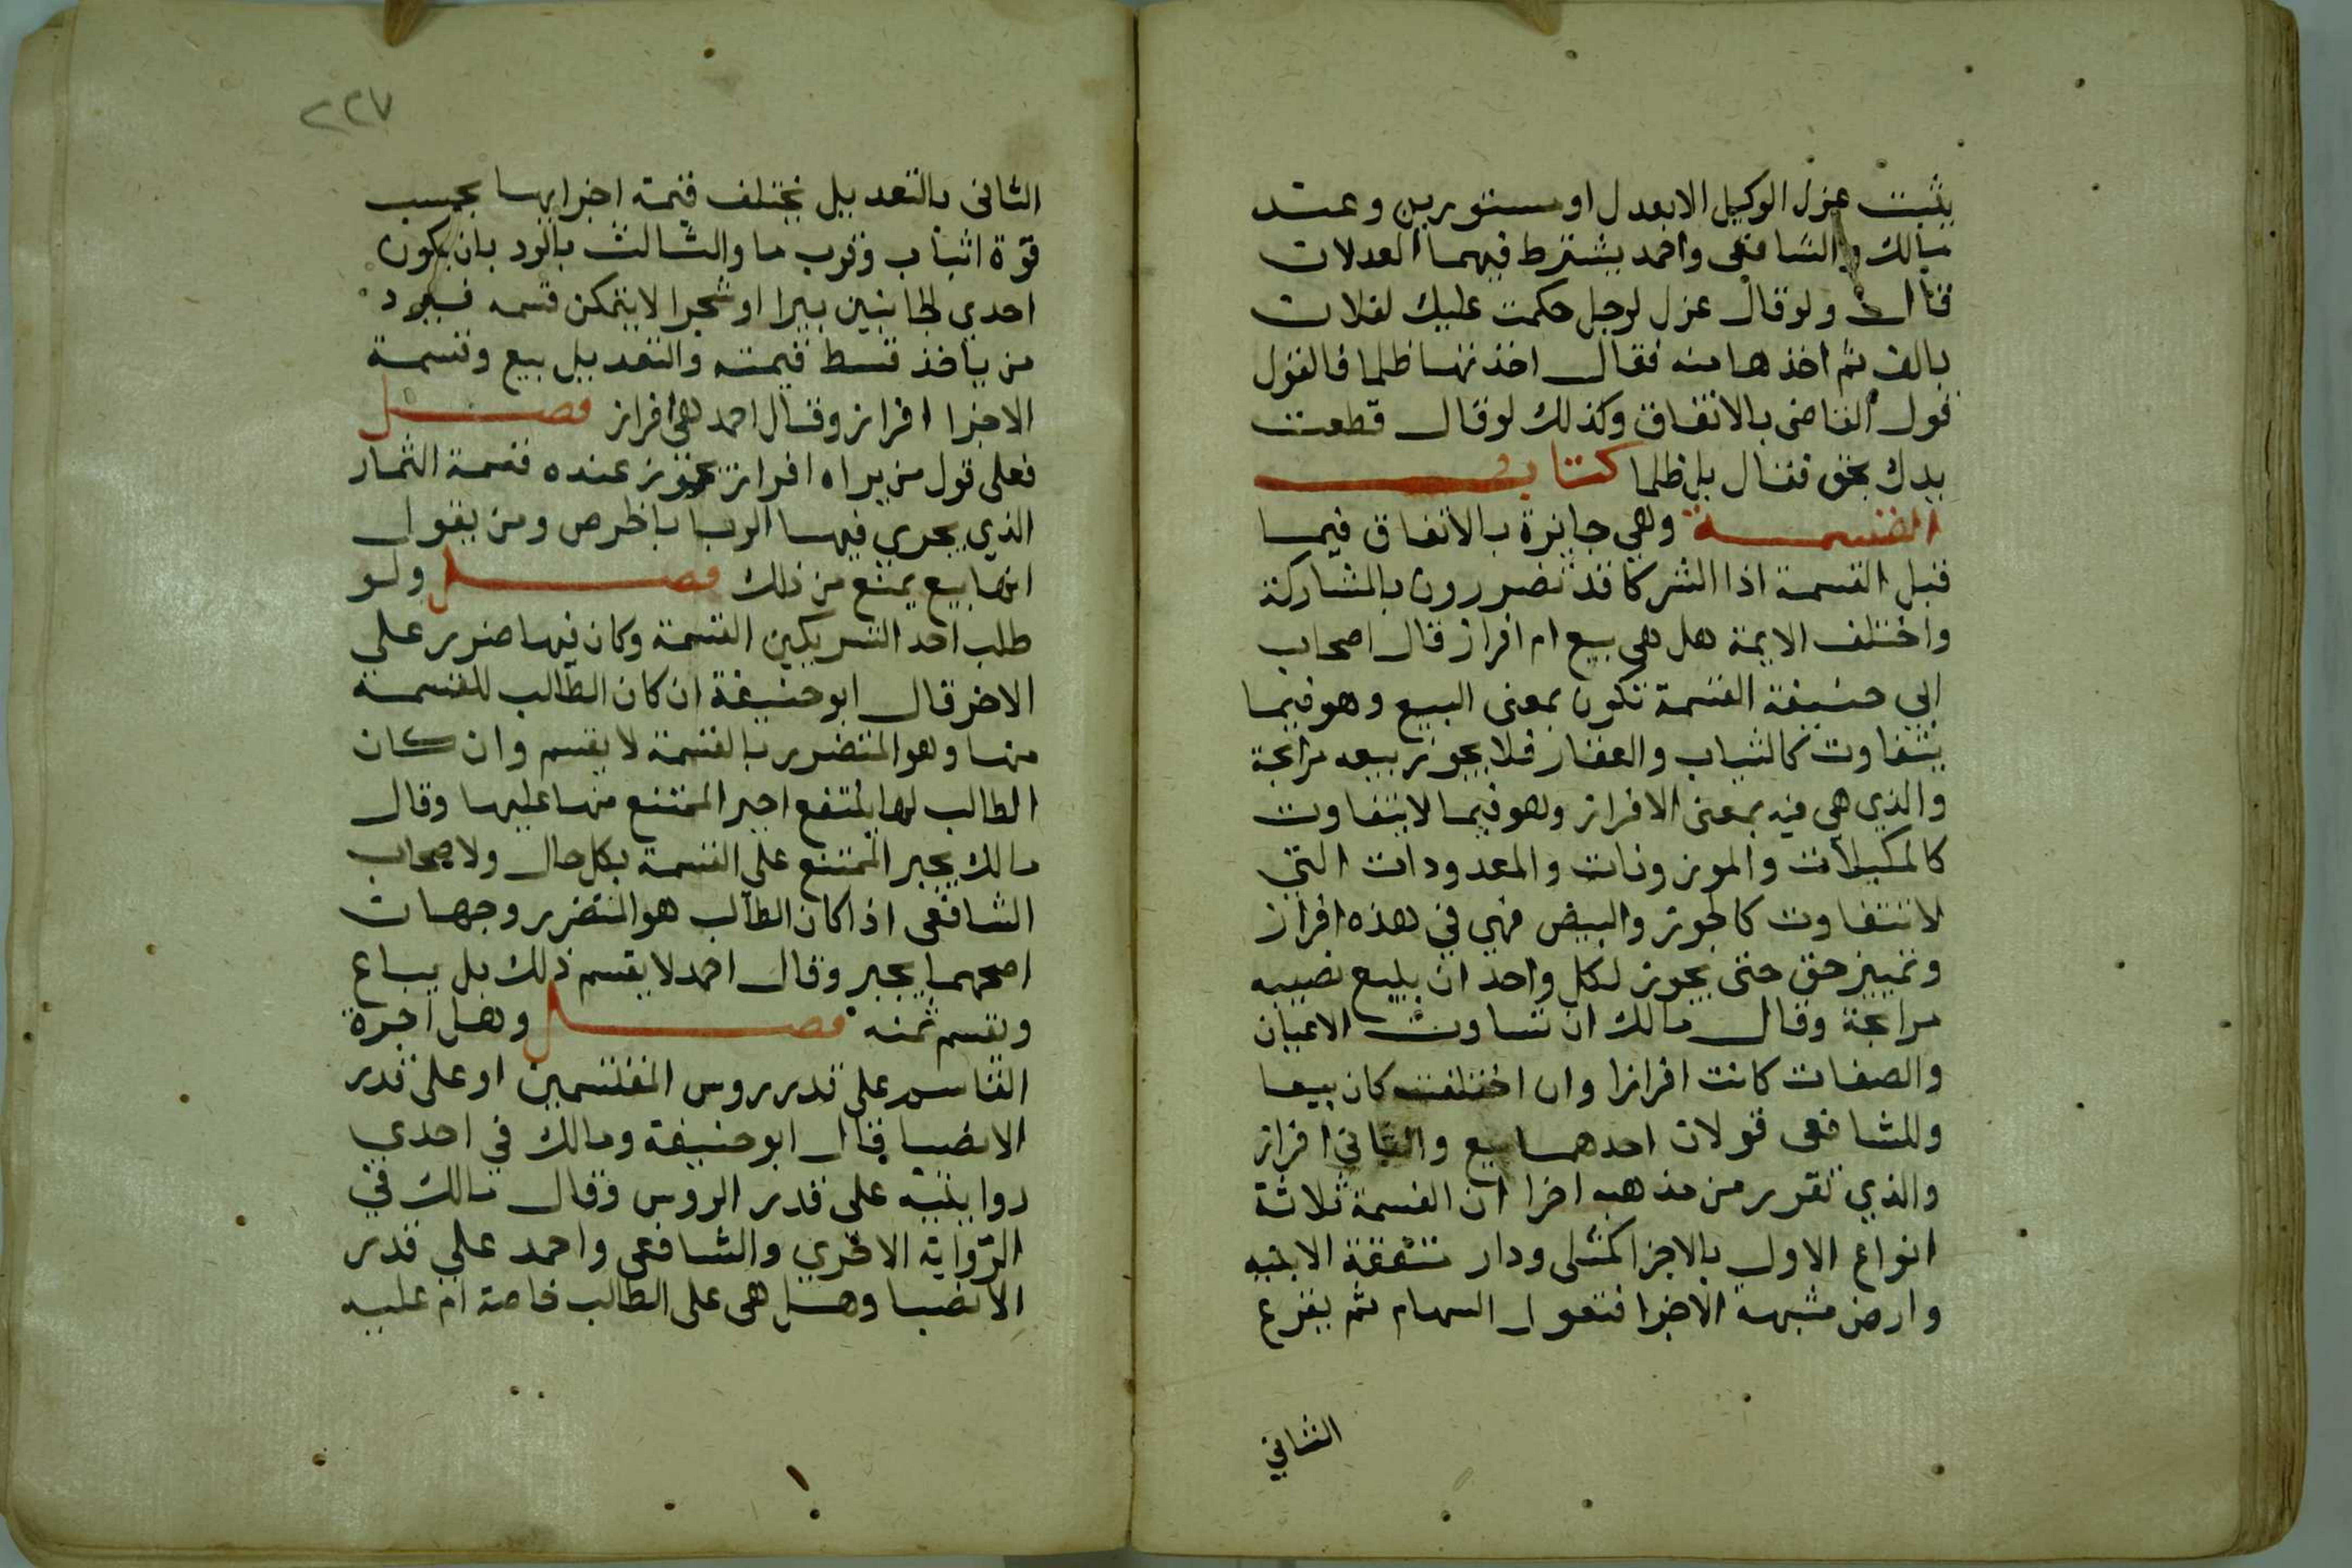 يثبت عزل الوكيل الا بعدل او مستورين وعند
مالك والشافعي واحمد يشترط فيهما العدلات
قال ولو قال عزل لرجل حكمت عليك لفلان
بالف ثم اخذها منه فقال اخذتها ظلما فالقول
قول القاضي بالاتفاق وكذلك لو قال قطعت
يدك بحق فقال بل ظلما كتاب
القسمة وهي جايزة بالاتفاق فيما
قبل القسمة اذا الشركا قد تضررون بالمشاركة
واختلف الايمة هل هي بيع ام افراز قال اصحاب
ابي حنيفة القسمة تكون بمعنى البيع وهو فيما
يتفاوت كالثياب والعقار فلا يجوز بيعه مرابحة
والذي هي فيه بمعنى الافراز وهو فيما لا يتفاوت
كالمكيلات والموزونات والمعدودات التي
لا تتفاوت كالجوز والبيض فهي في هذه افراز
وتمييز حق حتى يجوز لكل واحد ان يبيع نصيبه
مرابحة وقال مالك ان تساوت الاعيان
والصفات كانت افرازا وان اختلفت كان بيعا
وللشافعي قولان احدهما بيع والثاني افراز
والذي تقرر من مذهبه اخرا ان القسمة ثلاثة
انواع الاول بالاجزا كمثلى ودار متفقة الابنيه
وارض مشبهة الاجزا فتعول السهام ثم يقرع
الثاني
٢٢٧
الثاني بالتعديل يختلف قيمة اجزايها بحسب
قوة انبات وقرب ما والثالث بالرد بان يكون
احدي الجانبين بيرا او شجرا لا يتمكن قسمه فيرد
من ياخذ قسط قيمته والتعديل بيع وقسمة
الاجزا افراز وقال احمد هي افراز فصل
فعلى قول من يراه افراز يجوز عنده قسمة الثمار
الذي يجري فيها الربا بالخرص ومن يقول
انها بيع يمنع من ذلك فصل ولو
طلب احد الشريكين القسمة وكان فيها ضرر على
الاخر قال ابو حنيفة ان كان الطالب للقسمة
منها وهو المتضرر بالقسمة لا يقسم وان كان
الطالب لها المتفع اجبر الممتنع منها عليها وقال
مالك يجبر الممتنع على القسمة بكل حال ولاصحاب
الشافعي اذا كان الطالب هو المتضرر وجهان
اصحهما يجبر وقال احمد لا يقسم ذلك بل يباع
وتقسم ثمنه فصل وهل اجرة
القاسم على قدر روس المقتسمين او على قدر
الانصبا قال ابو حنيفة ومالك في احدي
روايتيه على قدر الروس وقال مالك في
الرواية الاخري والشافعي واحمد على قدر
الانصبا وهل هي على الطالب خاصة ام عليه